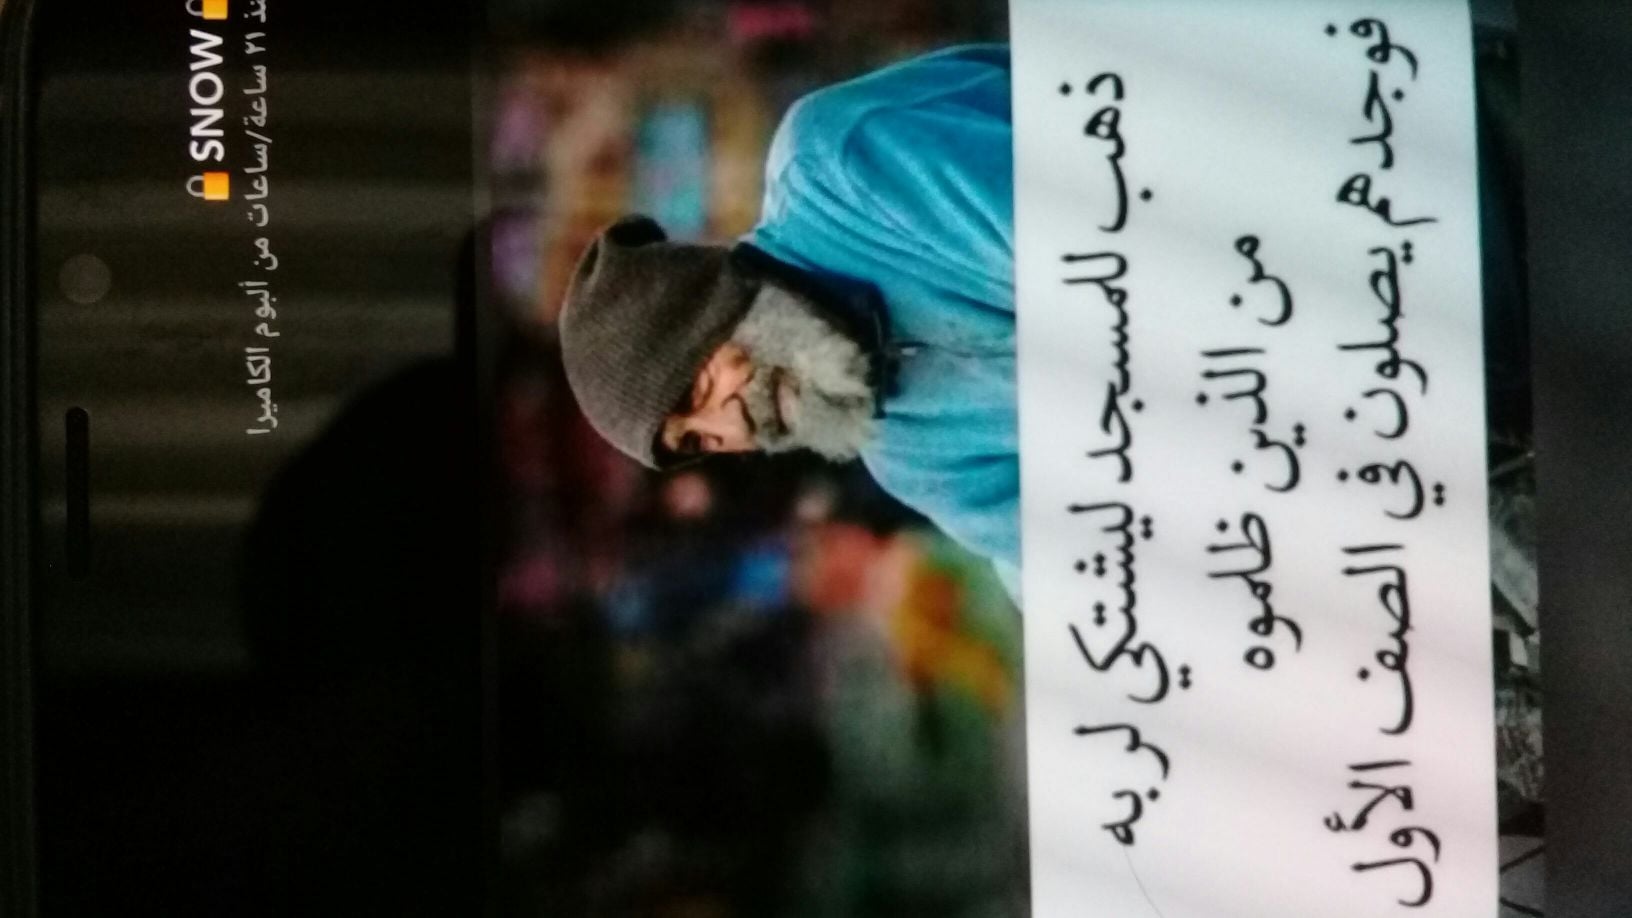 🔒 SNOW 🔒
منذ ٢١ ساعة/ساعات من ألبوم الكاميرا
ذهب للمسجد ليشتكي لربه
من الذين ظلموه
فوجدهم يصلون في الصف الأول